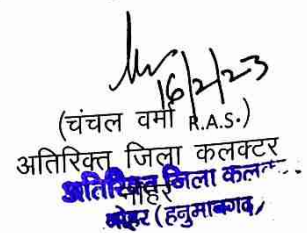 16/2/23
(चंचल वर्मा R.A.S.)
अतिरिक्त जिला कलक्टर
नोहर
अतिरिक्त जिला कल
नोहर (हनुमानगढ़)